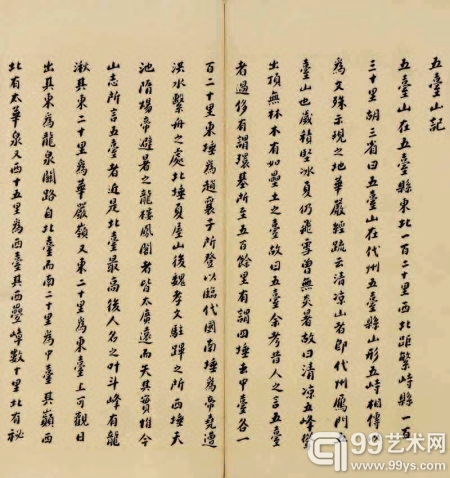 五臺山記
五臺山在五臺縣東北一百二十里西北距繁峙縣一百
三十里胡三省曰五臺山在代州五臺縣山形五峙相傳以
為文殊示現之地華嚴經疏云清凉山者即代州鴈門五
臺山也歲積堅冰夏仍飛雪曾無炎暑故曰清凉五峰聳
出頂無林木有如壘土之臺故曰五臺余考昔人之言五臺
者過侈有謂環基所至五百餘里有謂四埵去中臺各一
百二十里東埵為趙襄子所登以臨代國南埵為帝堯遭
洪水繫舟之處北埵夏屋山後魏孝文駐蹕之所西埵天
池隋煬帝避暑之龍樓鳳閣者皆太廣遠而失其實惟今
山志所言五臺者近是北臺最高後人名之叶斗峰有龍
湫其東二十里為華嚴嶺又東二十里為東臺上可觀日
出其東為龍泉關路自北臺而南二十里為中臺其巔西
北有太華泉又西十五里為西臺其西壘嶂數十里北有祕
99艺术网
www.99ys.com